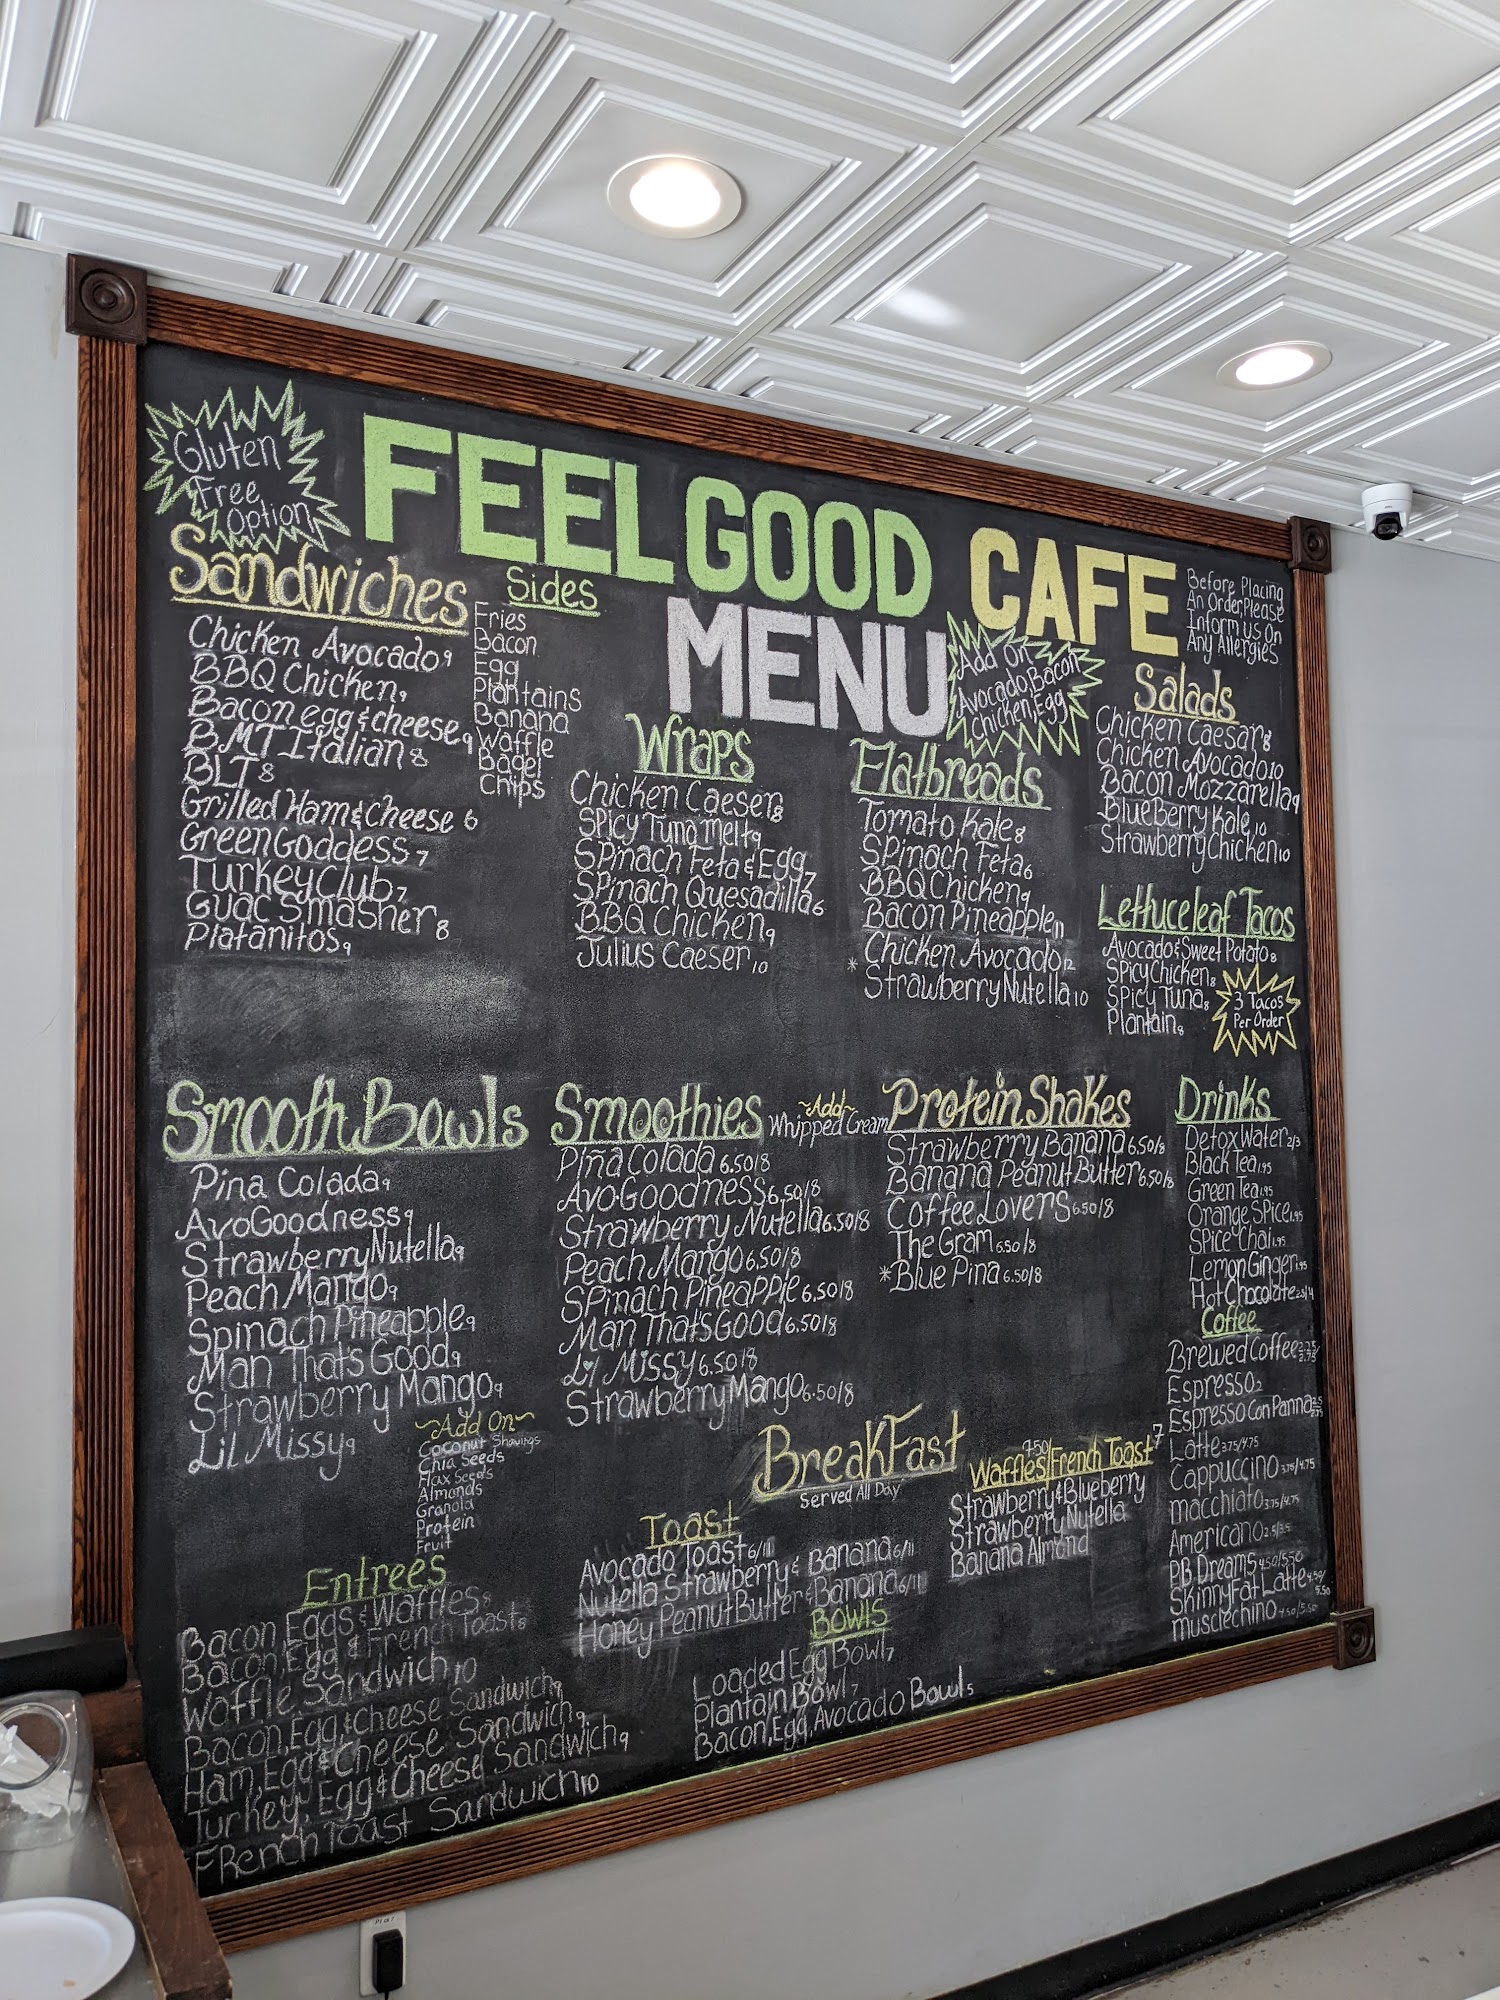 Gluten
Free
Option
FEEL GOOD CAFE
MENU
Before Placing
An Order Please
Inform us On
Any Allergies
Sandwiches
Chicken Avocado 9
BBQ Chicken 9
Bacon egg & cheese 9
BMT Italian 8
BLT 8
Grilled Ham & Cheese 6
Green Goddess 7
Turkey Club 7
Guac Smasher 8
Platanitos 9
Sides
Fries
Bacon
Egg
Plantains
Banana
Waffle
Bagel
Chips
Wraps
Chicken Caeser 8
Spicy Tuna Melt 9
Spinach Feta & Egg 7
Spinach Quesadilla 6
BBQ Chicken 9
Julius Caeser 10
Add On
Avocado, Bacon
Chicken, Egg
Flatbreads
Tomato Kale 8
Spinach Feta 6
BBQ Chicken 9
Bacon Pineapple 11
Chicken Avocado 12
* Strawberry Nutella 10
Salads
Chicken Caesar 8
Chicken Avocado 10
Bacon Mozzarella 9
BlueBerry Kale 10
Strawberry Chicken 10
Lettuce leaf Tacos
Avocado & Sweet Potato 8
Spicy Chicken 8
Spicy Tuna 8
Plantain 8
3 Tacos
Per Order
Smooth Bowls
Pina Colada 9
AvoGoodness 9
Strawberry Nutella 9
Peach Mango 9
Spinach Pineapple 9
Man That's Good 9
Strawberry Mango 9
Lil Missy 9
~Add On~
Coconut Shavings
Chia Seeds
Flax Seeds
Almonds
Granola
Protein
Fruit
Smoothies
~Add~
Whipped Cream
Piña Colada 6.50/8
AvoGoodness 6.50/8
Strawberry Nutella 6.50/8
Peach Mango 6.50/8
Spinach Pineapple 6.50/8
Man That's Good 6.50/8
Lil Missy 6.50/8
Strawberry Mango 6.50/8
Protein Shakes
Strawberry Banana 6.50/8
Banana Peanut Butter 6.50/8
Coffee Lovers 6.50/8
The Gram 6.50/8
*Blue Pina 6.50/8
Drinks
Detox Water 2/3
Black Tea 1.95
Green Tea 1.95
Orange Spice 1.95
Spice Chai 1.95
Lemon Ginger 1.95
Hot Chocolate
Coffee
Brewed Coffee 2.25/2.75
Espresso 2
Espresso Con Panna
Latte 3.75/4.75
Cappuccino 3.75/4.75
Macchiato 3.75/4.75
Americano 2.5/3.5
PB Dreams 4.50/5.50
SkinnyFat Latte 4.50/5.50
Musclechino 4.50/5.50
BreakFast
Served All Day
Waffles 7.50/French Toast 7
Strawberry & Blueberry
Strawberry Nutella
Banana Almond
Toast
Avocado Toast 6/11
Nutella Strawberry & Banana 6/11
Honey Peanut Butter & Banana 6/11
Bowls
Loaded Egg Bowl 7
Plantain Bowl 7
Bacon, Egg, Avocado Bowl 5
Entrees
Bacon Eggs & Waffles 8
Bacon, Egg & French Toast 8
Waffle Sandwich 10
Bacon, Egg & Cheese Sandwich 9
Ham, Egg & Cheese Sandwich 9
Turkey, Egg & Cheese Sandwich 9
French Toast Sandwich 10